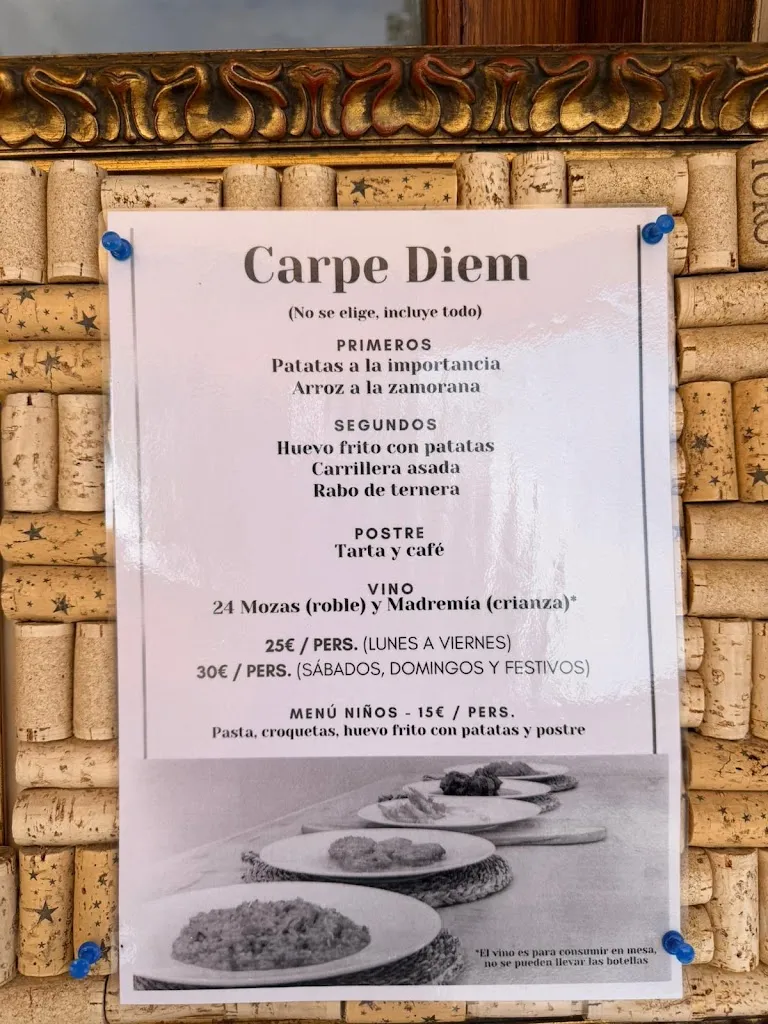 Carpe Diem
(No se elige, incluye todo)
PRIMEROS
Patatas a la importancia
Arroz a la zamorana
SEGUNDOS
Huevo frito con patatas
Carrillera asada
Rabo de ternera
POSTRE
Tarta y café
VINO
24 Mozas (roble) y Madremía (crianza)*
25€ / PERS. (LUNES A VIERNES)
30€ / PERS. (SÁBADOS, DOMINGOS Y FESTIVOS)
MENÚ NIÑOS - 15€ / PERS.
Pasta, croquetas, huevo frito con patatas y postre
*El vino es para consumir en mesa,
no se pueden llevar las botellas